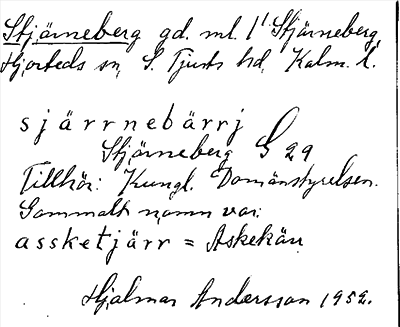 Stjärneberg gd. ml. 1¹ Stjärneberg,
Hjorteds sn, S. Tjusts hd, Kalm. l.
sjärrnebärrj
Stjärneberg G 29
Tillhör: Kungl. Domänstyrelsen.
Gammalt namn var:
assketjärr = Askekärr
Hjalmar Andersson 1959.